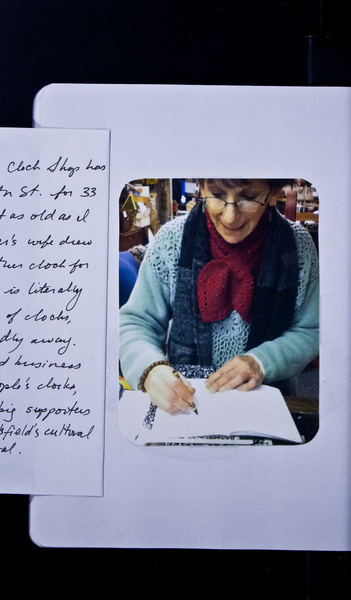 Clock Shop has
St. for 33
as old as I
's wife drew
clock for
is literally
of clocks,
away.
business
ople's clocks,
big supporters
sfield's cultural
al.